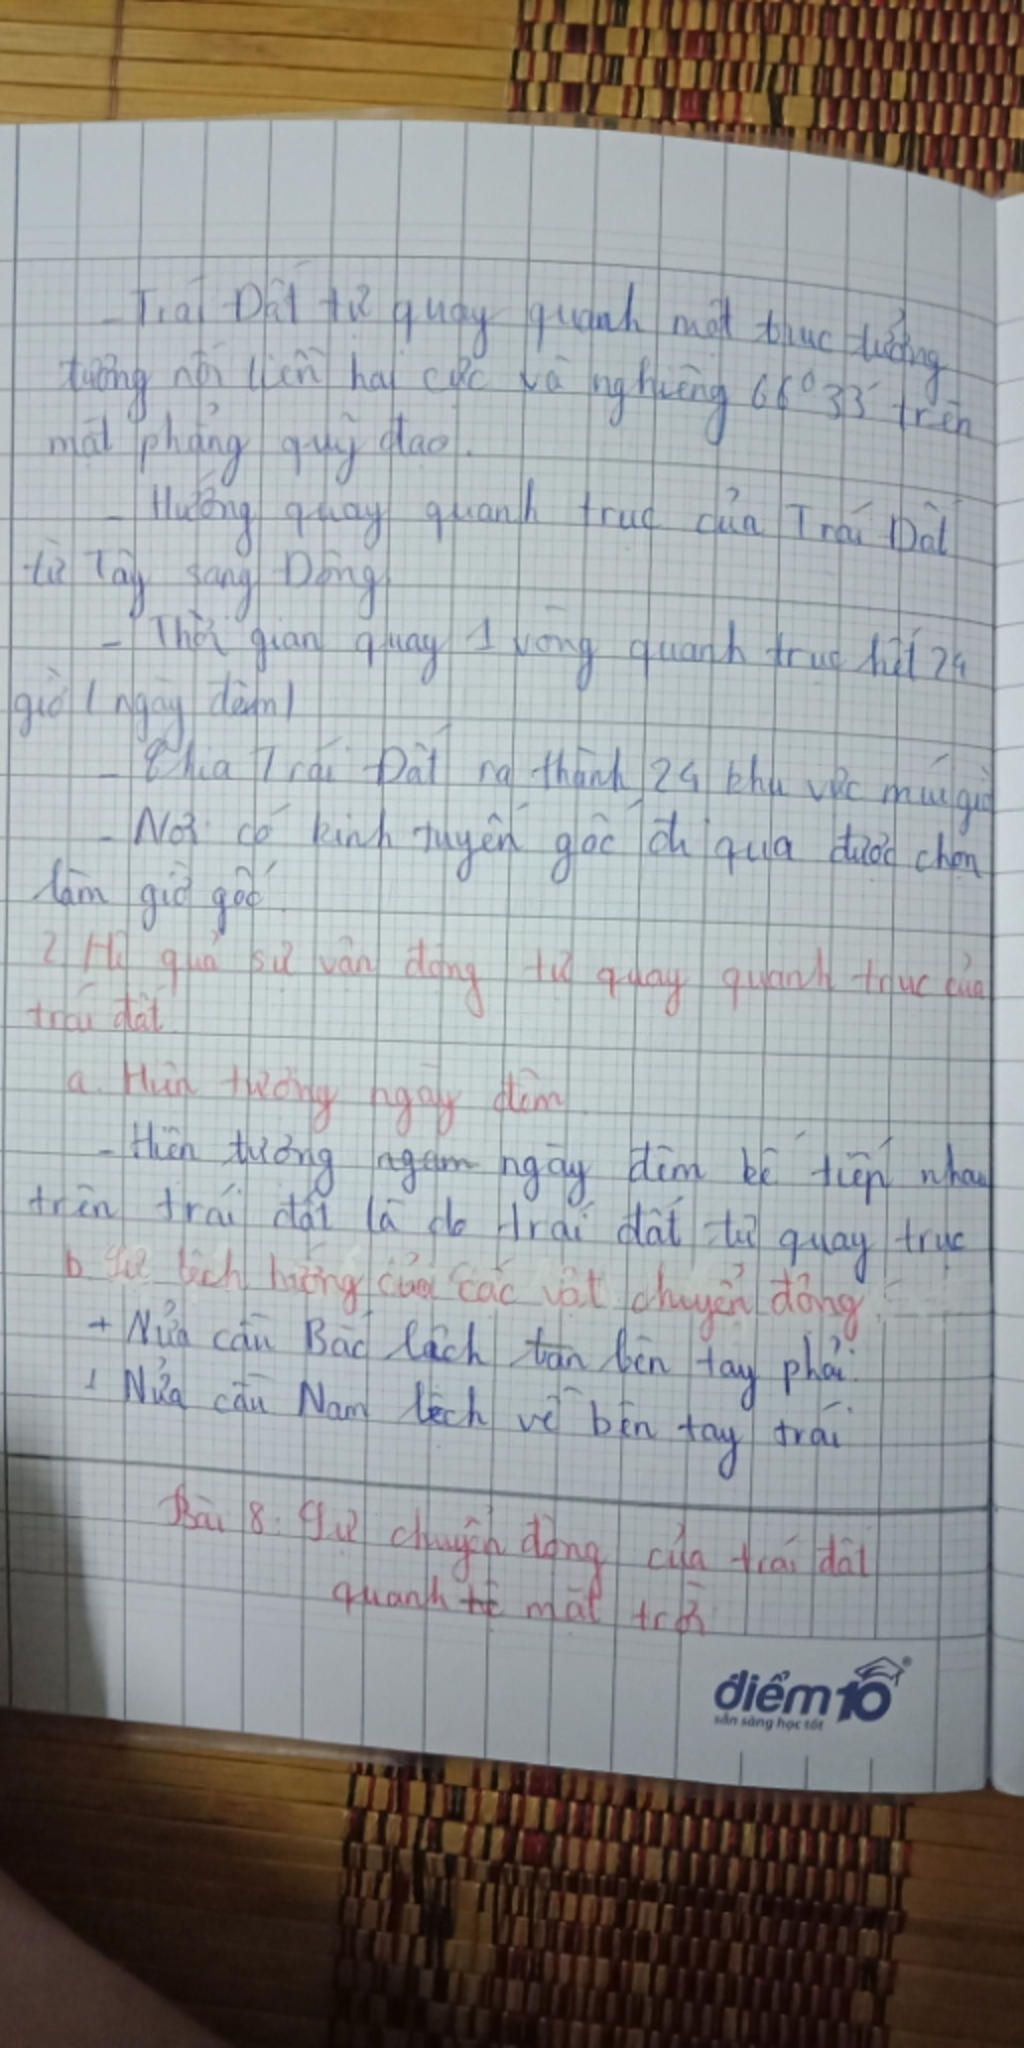 - Trái Đất tự quay quanh một trục tưởng
tưởng nối liền hai cực và nghiêng 66°33' trên
mặt phẳng quỹ đạo.
- Hướng quay quanh trục của Trái Đất
từ Tây sang Đông
- Thời gian quay 1 vòng quanh trục hết 24
giờ (ngày đêm)
- Chia Trái Đất ra thành 24 khu vực múi giờ
- Nơi có kinh tuyến gốc đi qua được chọn
làm giờ gốc
2. Hệ quả sự vận động tự quay quanh trục của
trái đất
a. Hiện tượng ngày đêm
- Hiện tượng ngày đêm kế tiếp nhau
trên trái đất là do trái đất tự quay trục
b. Sự lệch hướng của các vật chuyển động.
+ Nửa cầu Bắc lệch bên tay phải.
+ Nửa cầu Nam lệch về bên tay trái
Bài 8: Sự chuyển động của trái đất
quanh mặt trời
điểm10
sẵn sàng học tốt